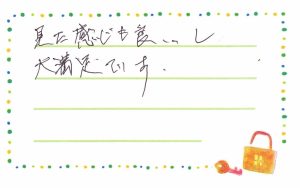 見た感じも良いし
大満足です。